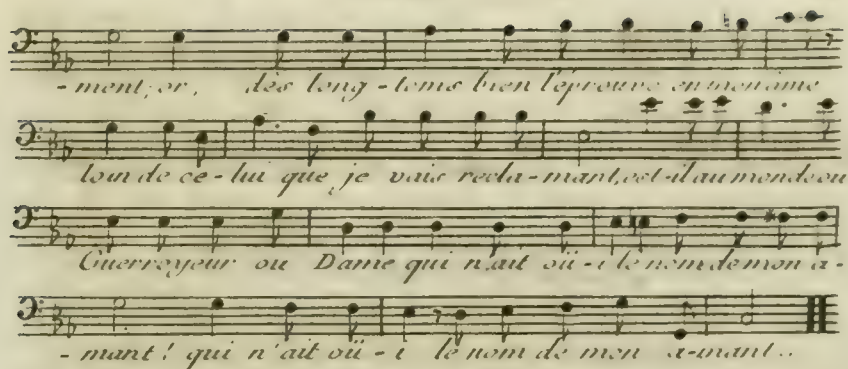 -ment; or, dès long-tems bien l'éprouve en mon ame
loin de ce-lui que je vais recla-mant, est-il au monde ou
Guerroyeur ou Dame qui n'ait oü-i le nom de mon a-
-mant! qui n'ait oü-i le nom de mon a-mant..